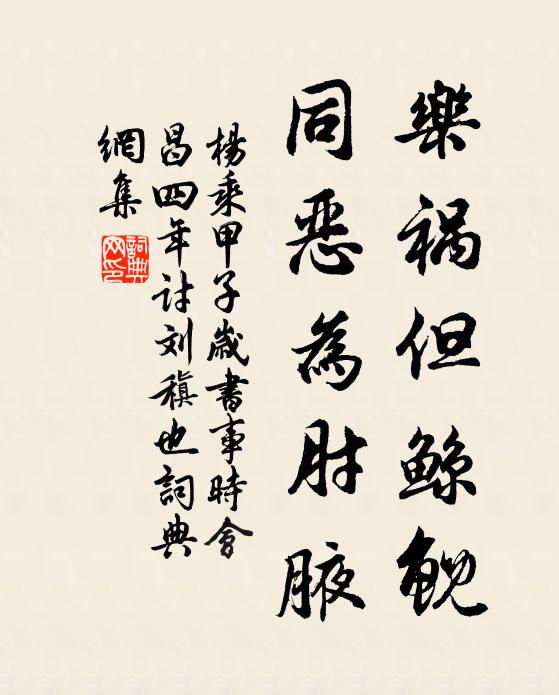 樂禍但鯨鲵
同惡為肘腋
楊乘甲子歲書事時會
昌四年讨刘稹也詞典
網集
詞典網印